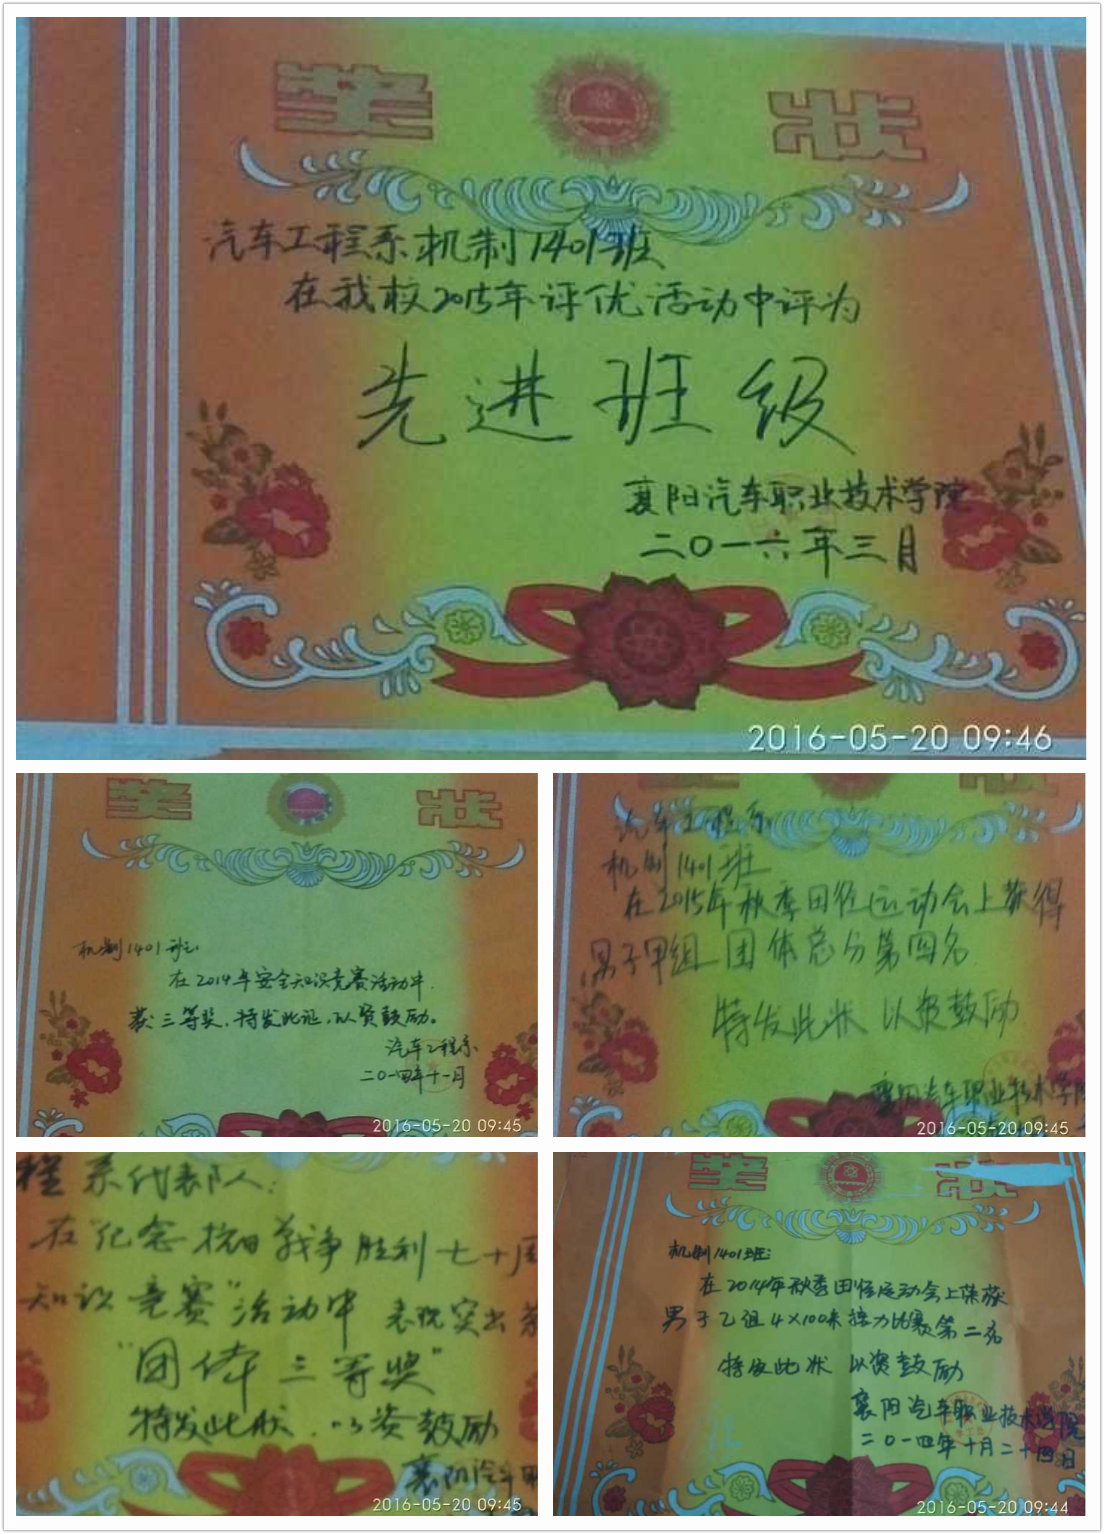 奖 状
汽车工程系机制1401班
在我校2015年评优活动中评为
先进班级
襄阳汽车职业技术学院
二〇一六年三月
2016-05-20 09:46
奖 状
机制1401班:
在2014年安全知识竞赛活动中
获三等奖,特发此证,以资鼓励。
汽车工程系
二〇一四年十一月
2016-05-20 09:45
汽车工程系
机制1401班
在2015年秋季田径运动会上获得
男子甲组团体总分第四名
特发此状 以资鼓励
襄阳汽车职业技术学院
2016-05-20 09:45
程系代表队:
在"纪念抗日战争胜利七十周
知识竞赛"活动中 表现突出荣
"团体三等奖"
特发此状.以资鼓励
襄阳汽车职
2016-05-20 09:45
奖 状
机制1401班:
在2014年秋季田径运动会上荣获
男子乙组4×100米接力比赛第二名
特发此状 以资鼓励
襄阳汽车职业技术学院
二〇一四年十月二十四日
2016-05-20 09:44